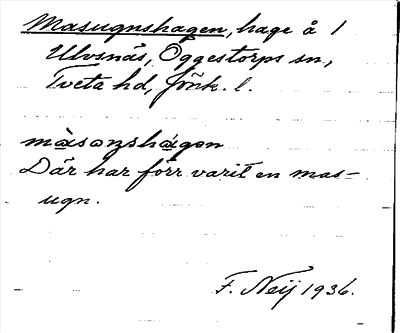 Masugnshagen, hage å 1
Ulvsnäs, Öggestorps sn,
Tveta hd, Jönk. l.
màsoŋshágən
Där har förr varit en mas-
ugn.
F. Neij 1936.